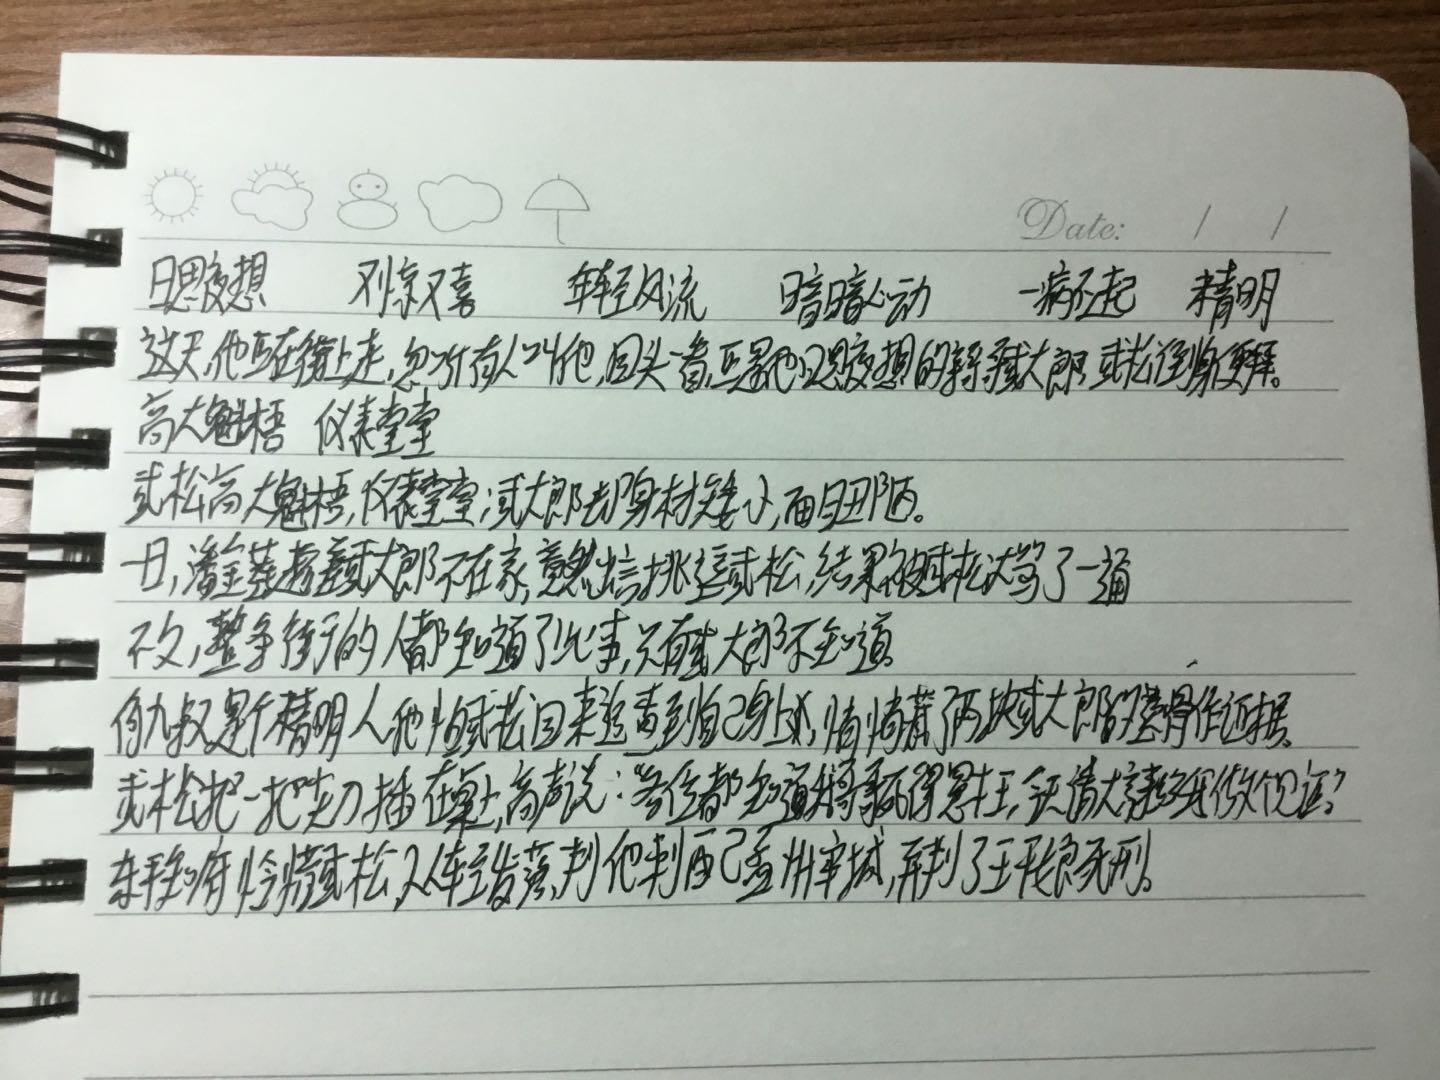 Date: / /
日思夜想 又惊又喜 年轻风流 暗暗心动 一病不起 精明
这天,他正在街上走,忽听有人叫他,回头一看,正是他日思夜想的哥哥武大郎,武松倒身便拜。
高大魁梧 仪表堂堂
武松高大魁梧,仪表堂堂;武大郎却身材矮小,面目丑陋。
一日,潘金莲趁着武大郎不在家,竟然出言挑逗武松,结果被武松大骂了一通
不久,整条街的人都知道了此事,只有武大郎不知道。
何九叔是个精明人他怕武松回来追查到自己身上,悄悄藏了两块武大郎的骨作证据。
武松把一把尖刀插在桌上,高声说:"各位都知道我哥哥死得冤枉,今天请大家给我做个见证?
东平知府怜惜武松,从轻发落,判他刺配孟州牢城,再判了王婆死刑。